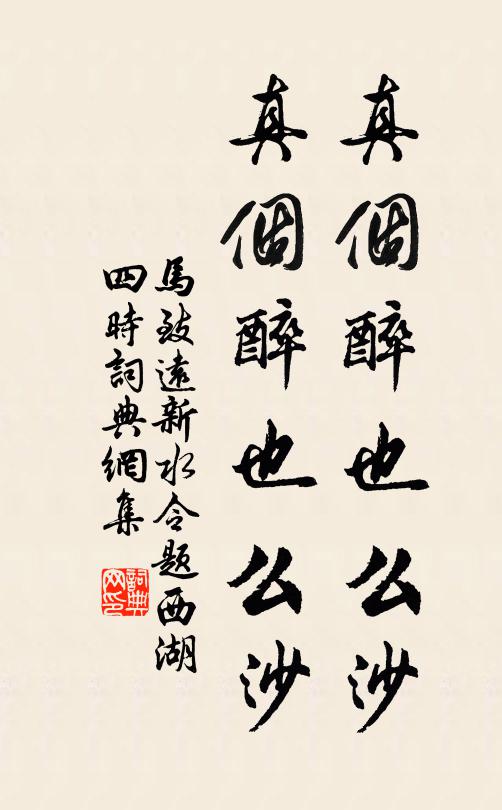 真個醉也么沙
真個醉也么沙
馬致遠新水令題西湖
四時詞典網集
詞典
网印